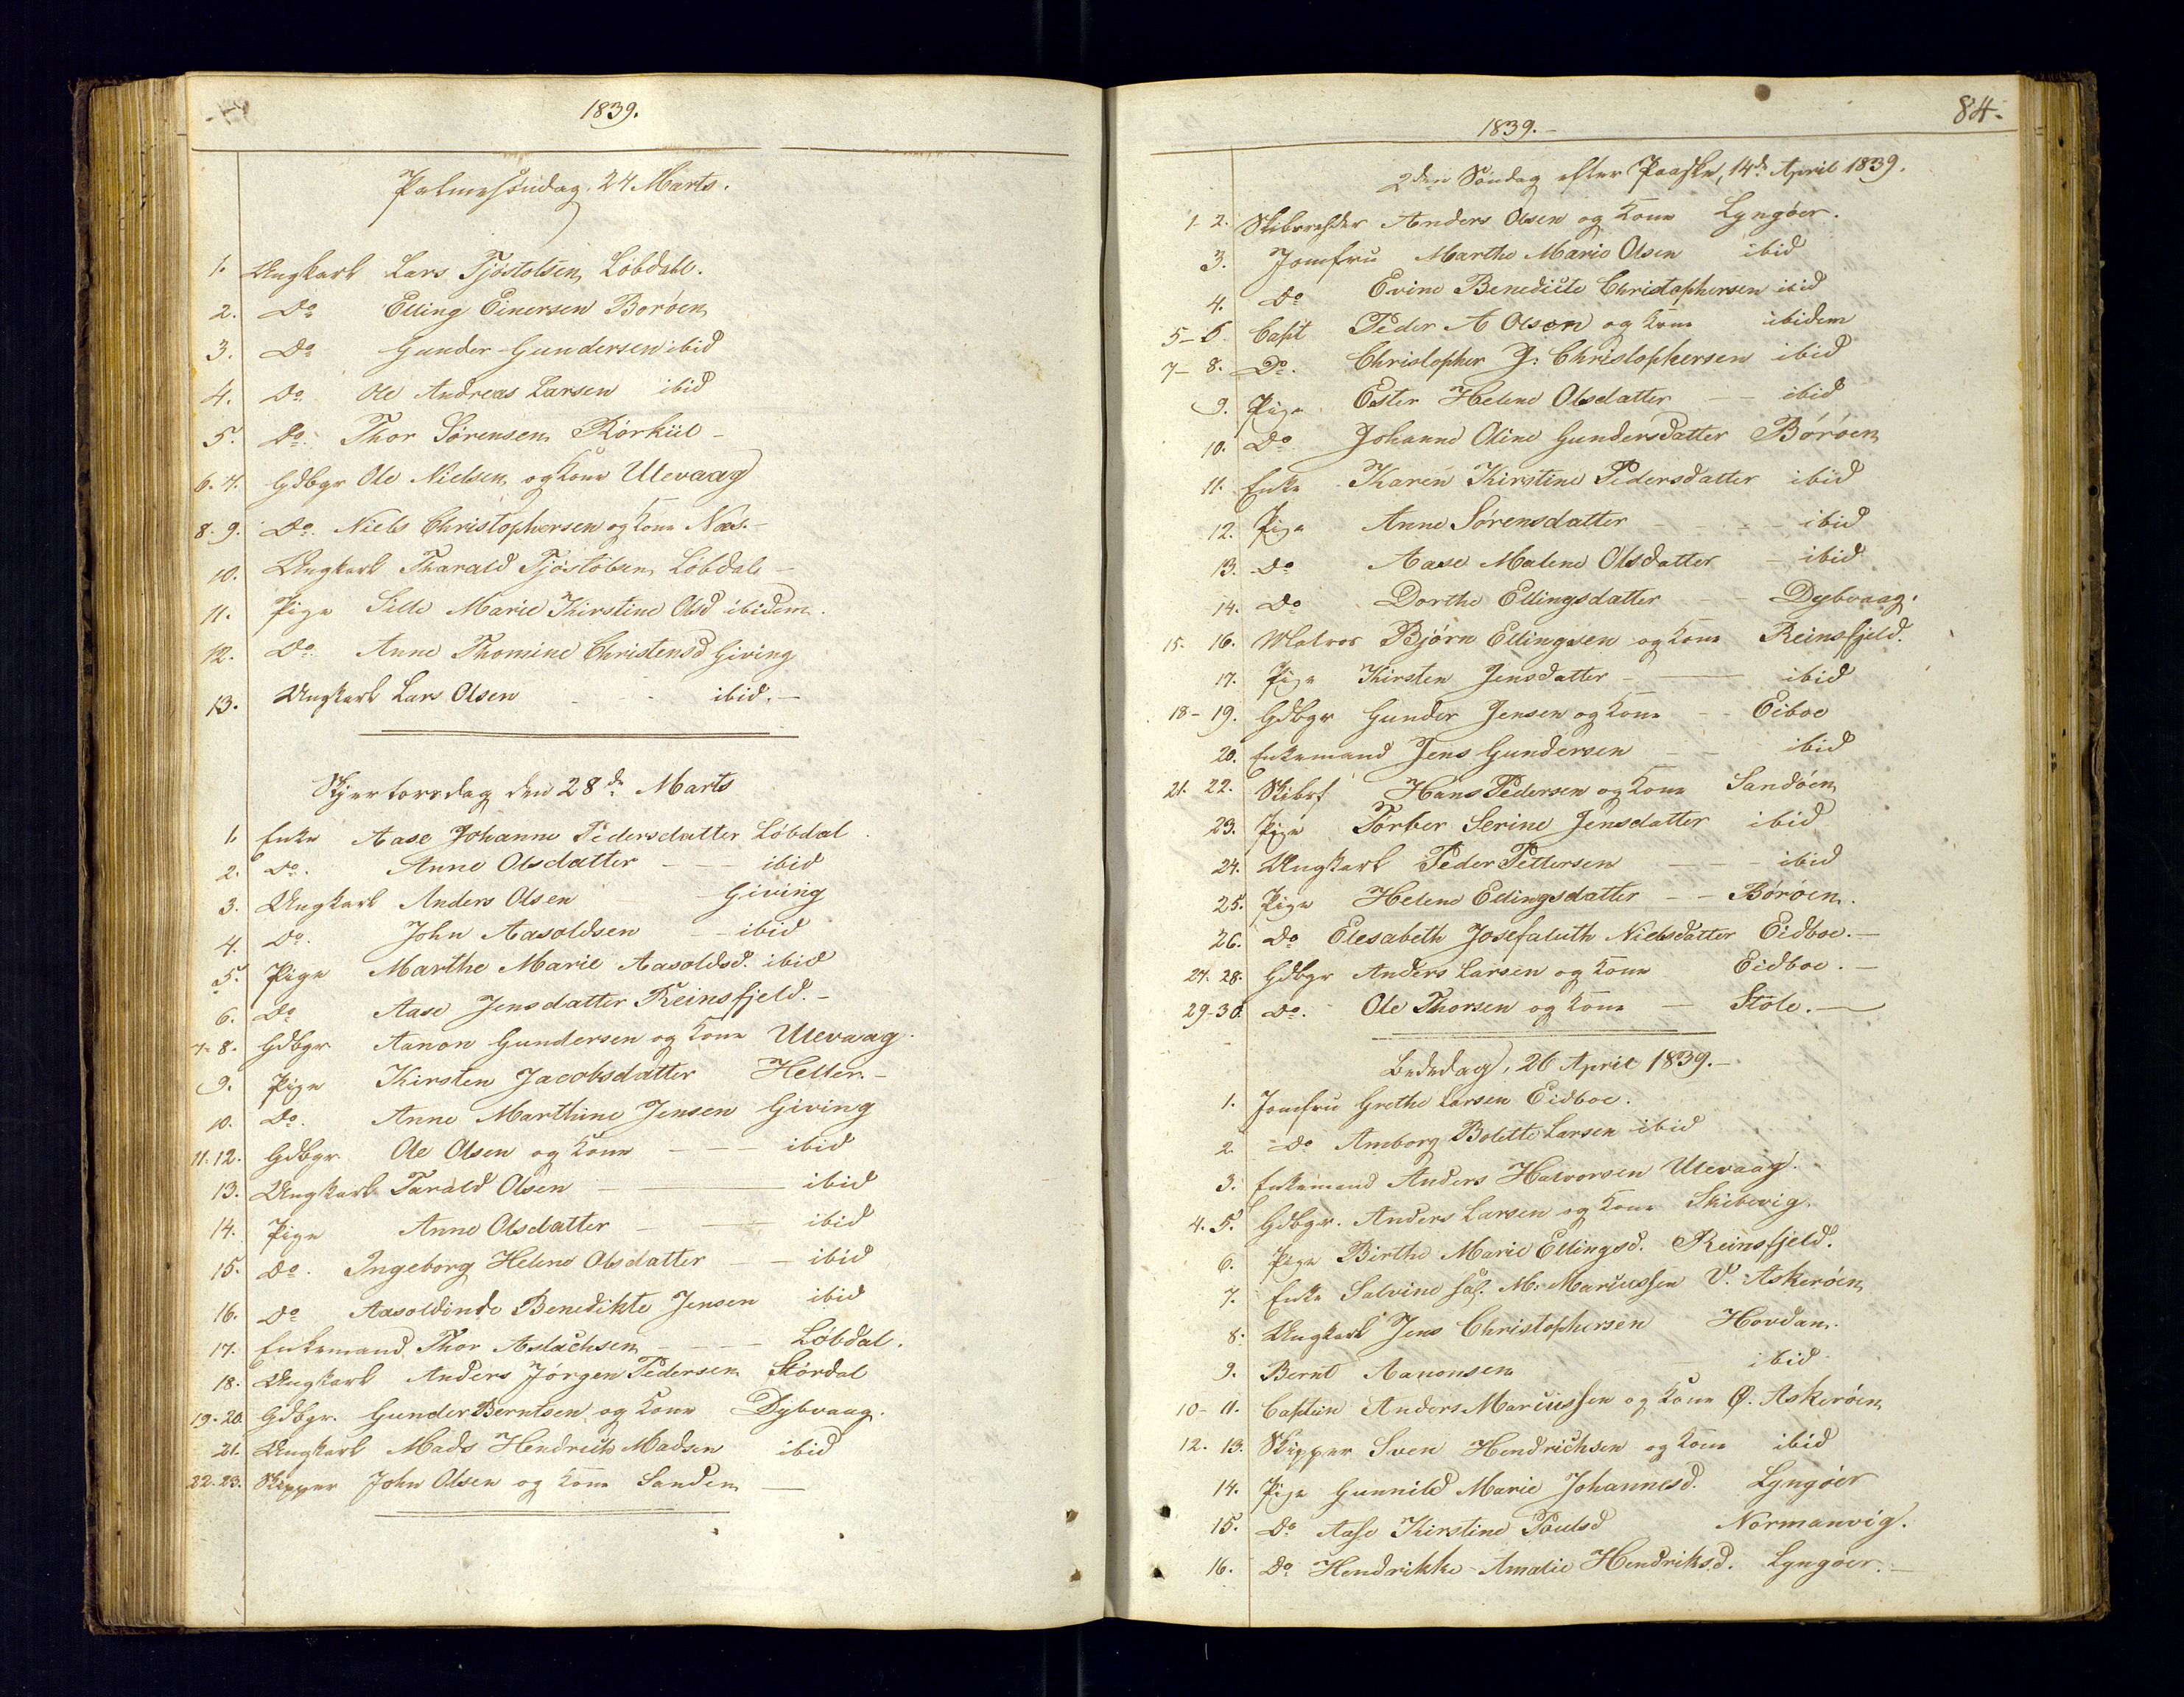 1839.
Palmesøndag, 24 Marts.
1. Ungkarl Lars Tjøstolsen Løbdahl.
2. Do Elling Einersen Borøen
3. Do Gunder Gundersen ibid
4. Do Ole Andreas Larsen ibid
5. Do Thor Sørensen Rørkiil -
6. 7. Gdbgr Ole Nielsen og Kone Utevaag
8. 9. Do Niels Christophersen og Kone Næs. -
10. Ungkarl Tharald Tjøstolsen Løbdale -
11. Pige Sille Marie Kirstine Olsd ibidem.
12. Do Anne Thomine Christensd Giving
13. Ungkarl Lars Olsen - - ibid. -
Skjertorsdag den 28de Marts
1. Enke Aase Johanne Pedersdatter Løbdal.
2. Do. Anne Olsdatter - - ibid
3. Ungkarl Anders Olsen Giving
4. Do. John Aasoldsen - - ibid
5. Pige Marthe Marie Aasoldsd. ibid
6. Do Aase Jensdatter Reinsfjeld. -
7-8. Gdbgr Aanon Gundersen og Kone Utevaag.
9. Pige Kirsten Jacobsdatter Heller. -
10. Do. Anne Marthine Jensen Giving
11. 12. Gdbgr Ole Olsen og Kone - - - ibid
13. Ungkarl Tarald Olsen - ibid
14. Pige Anne Olsdatter - - ibid
15. Do. Ingeborg Helene Olsdatter - - ibid
16. Do Aasoldinde Benedikte Jensen ibid
17. Enkemand Thor Aslachsen - - - Løbdal.
18. Ungkarl Anders Jørgen Pedersen Størdal
19-20. Gdbgr. Gunder Berntsen og Kone Dybvaag.
21. Ungkarl Mads Hendrich Madsen ibid
22. 23. Skipper John Olsen og Kone Sanden -
84.
1839. -
2den Søndag efter Paaske, 14de April 1839.
1-2. Skibsreder Anders Olsen og Kone Lyngøer.
3. Jomfru Marthe Marie Olsen ibid
4. Do Evine Benedicte Christophersen ibid
5-6. Capt Peder A Olsen og Kone ibidem
7-8. Do. Christopher J. Christophersen ibid
9. Pige Ester Helene Olsdatter - - ibid
10. Do Johanne Oline Gundersdatter Børøen
11. Enke Karen Kirstine Pedersdatter ibid
12. Pige Anne Sørensdatter - - - ibid
13. Do Aase Malene Olsdatter - ibid
14. Do Dorthe Ellingsdatter - - Dybvaag.
15. 16. Matros Bjørn Ellingsen og Kone Reinsfjeld.
17. Pige Kirsten Jensdatter - - ibid
18-19. Gdbgr Gunder Jensen og Kone - - Eiboe
20. Enkemand Jens Gundersen - - ibid
21. 22. Skibsf Hans Pedersen og Kone Sandøen
23. Pige Tørber Serine Jensdatter ibid
24. Ungkarl Peder Pettersen - - - ibid
25. Pige Helene Ellingsdatter - - Børøen.
26. Do Elesabeth Josefaluth Nielsdatter Eidboe. -
27. 28. Gdbgr Anders Larsen og Kone Eidboe. -
29-30. Do. Ole Thorsen og Kone - Stole. -
Bededag, 26 April 1839. -
1. Jomfru Grethe Larsen Eidboe.
2. Do Amborg Bolette Larsen ibid
3. Enkemand Anders Halvorsen Utevaag.
4. 5. Gdbgr. Anders Larsen og Kone Skibevig.
6. Pige Birthe Marie Ellingsd. Reinsfjeld.
7. Enke Salvine sal. M. Mariussen V. Askerøen
8. Ungkarl Jens Christophersen Hovdan.
9. Bernt Aanonsen ibid
10-11. Captein Anders Mariussen og Kone Ø. Askerøen
12. 13. Skipper Sven Hendrichsen og Kone ibid
14. Pige Gunnild Marie Johannesd. Lyngøer
15. Do Aase Kirstine Poulsd Normanvig.
16. Do Hendrikke Amalie Hendriksd. Lyngøer. -